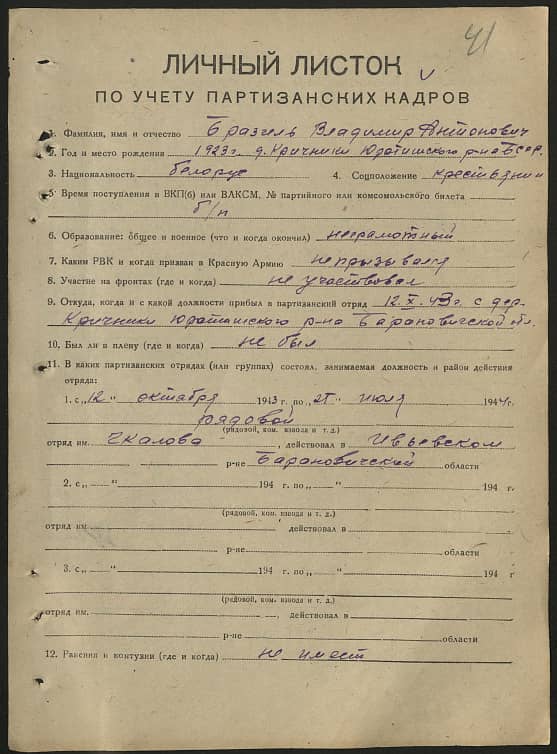 41
ЛИЧНЫЙ ЛИСТОК
ПО УЧЕТУ ПАРТИЗАНСКИХ КАДРОВ
1. Фамилия, имя и отчество Бразгель Владимир Антонович
2. Год и место рождения 1923 г. д. Кричники Юратишского р-на БССР.
3. Национальность белорус 4. Соцположение крестьянин
5. Время поступления в ВКП(б) или ВЛКСМ, № партийного или комсомольского билета
б/п
6. Образование: общее и военное (что и когда окончил) неграмотный
7. Каким РВК и когда призван в Красную Армию не призывался
8. Участие на фронтах (где и когда) не участвовал
9. Откуда, когда и с какой должности прибыл в партизанский отряд 12.X.43 г. с дер.
Кричники Юратишского р-на Барановичской обл.
10. Был ли в плену (где и когда) не был
11. В каких партизанских отрядах (или группах) состоял, занимаемая должность и район действия
отряда:
1. с „12" октября 1943 г. по „25" июля 1944 г.
рядовой
(рядовой, ком. взвода и т. д.)
отряд им. Чкалова, действовал в Ивьевском
р-не Барановичской области
2. с „ " 194 г. по „ " 194 г.
(рядовой, ком. взвода и т. д.)
отряд им. , действовал в
р-не области
3. с „ " 194 г. по „ " 194 г
(рядовой, ком. взвода и т. д.)
отряд им. , действовал в
р-не области
12. Ранения и контузии (где и когда) не имеет